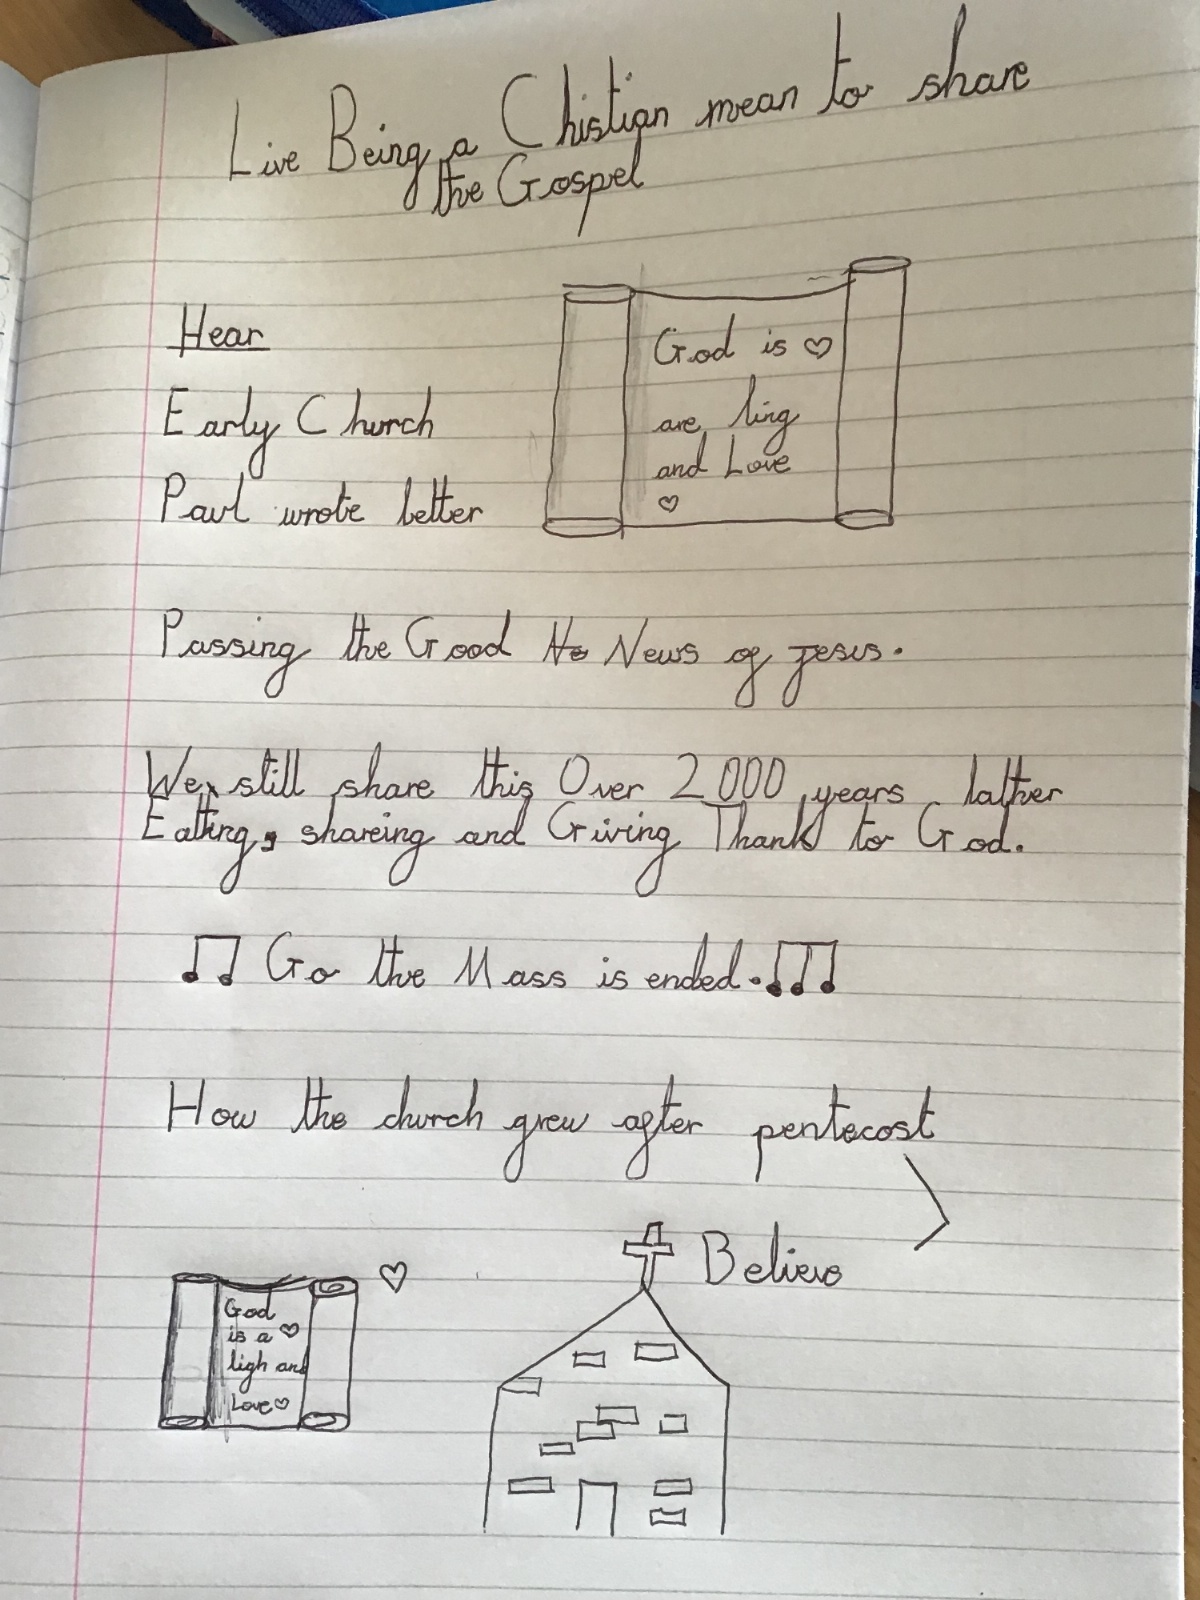 Live Being a Chistian mean to share
the Gospel
Hear
Early Church
Paul wrote letter
God is ♡
are ling
and Love
♡
Passing the Good Ne News of jesus.
We still share this Over 2000 years lather
Eatting, shareing and Giving Thank to God.
♫ Go the Mass is ended. ♫
How the church grew after pentecost
Believe
God
is a ♡
ligh and
Love ♡